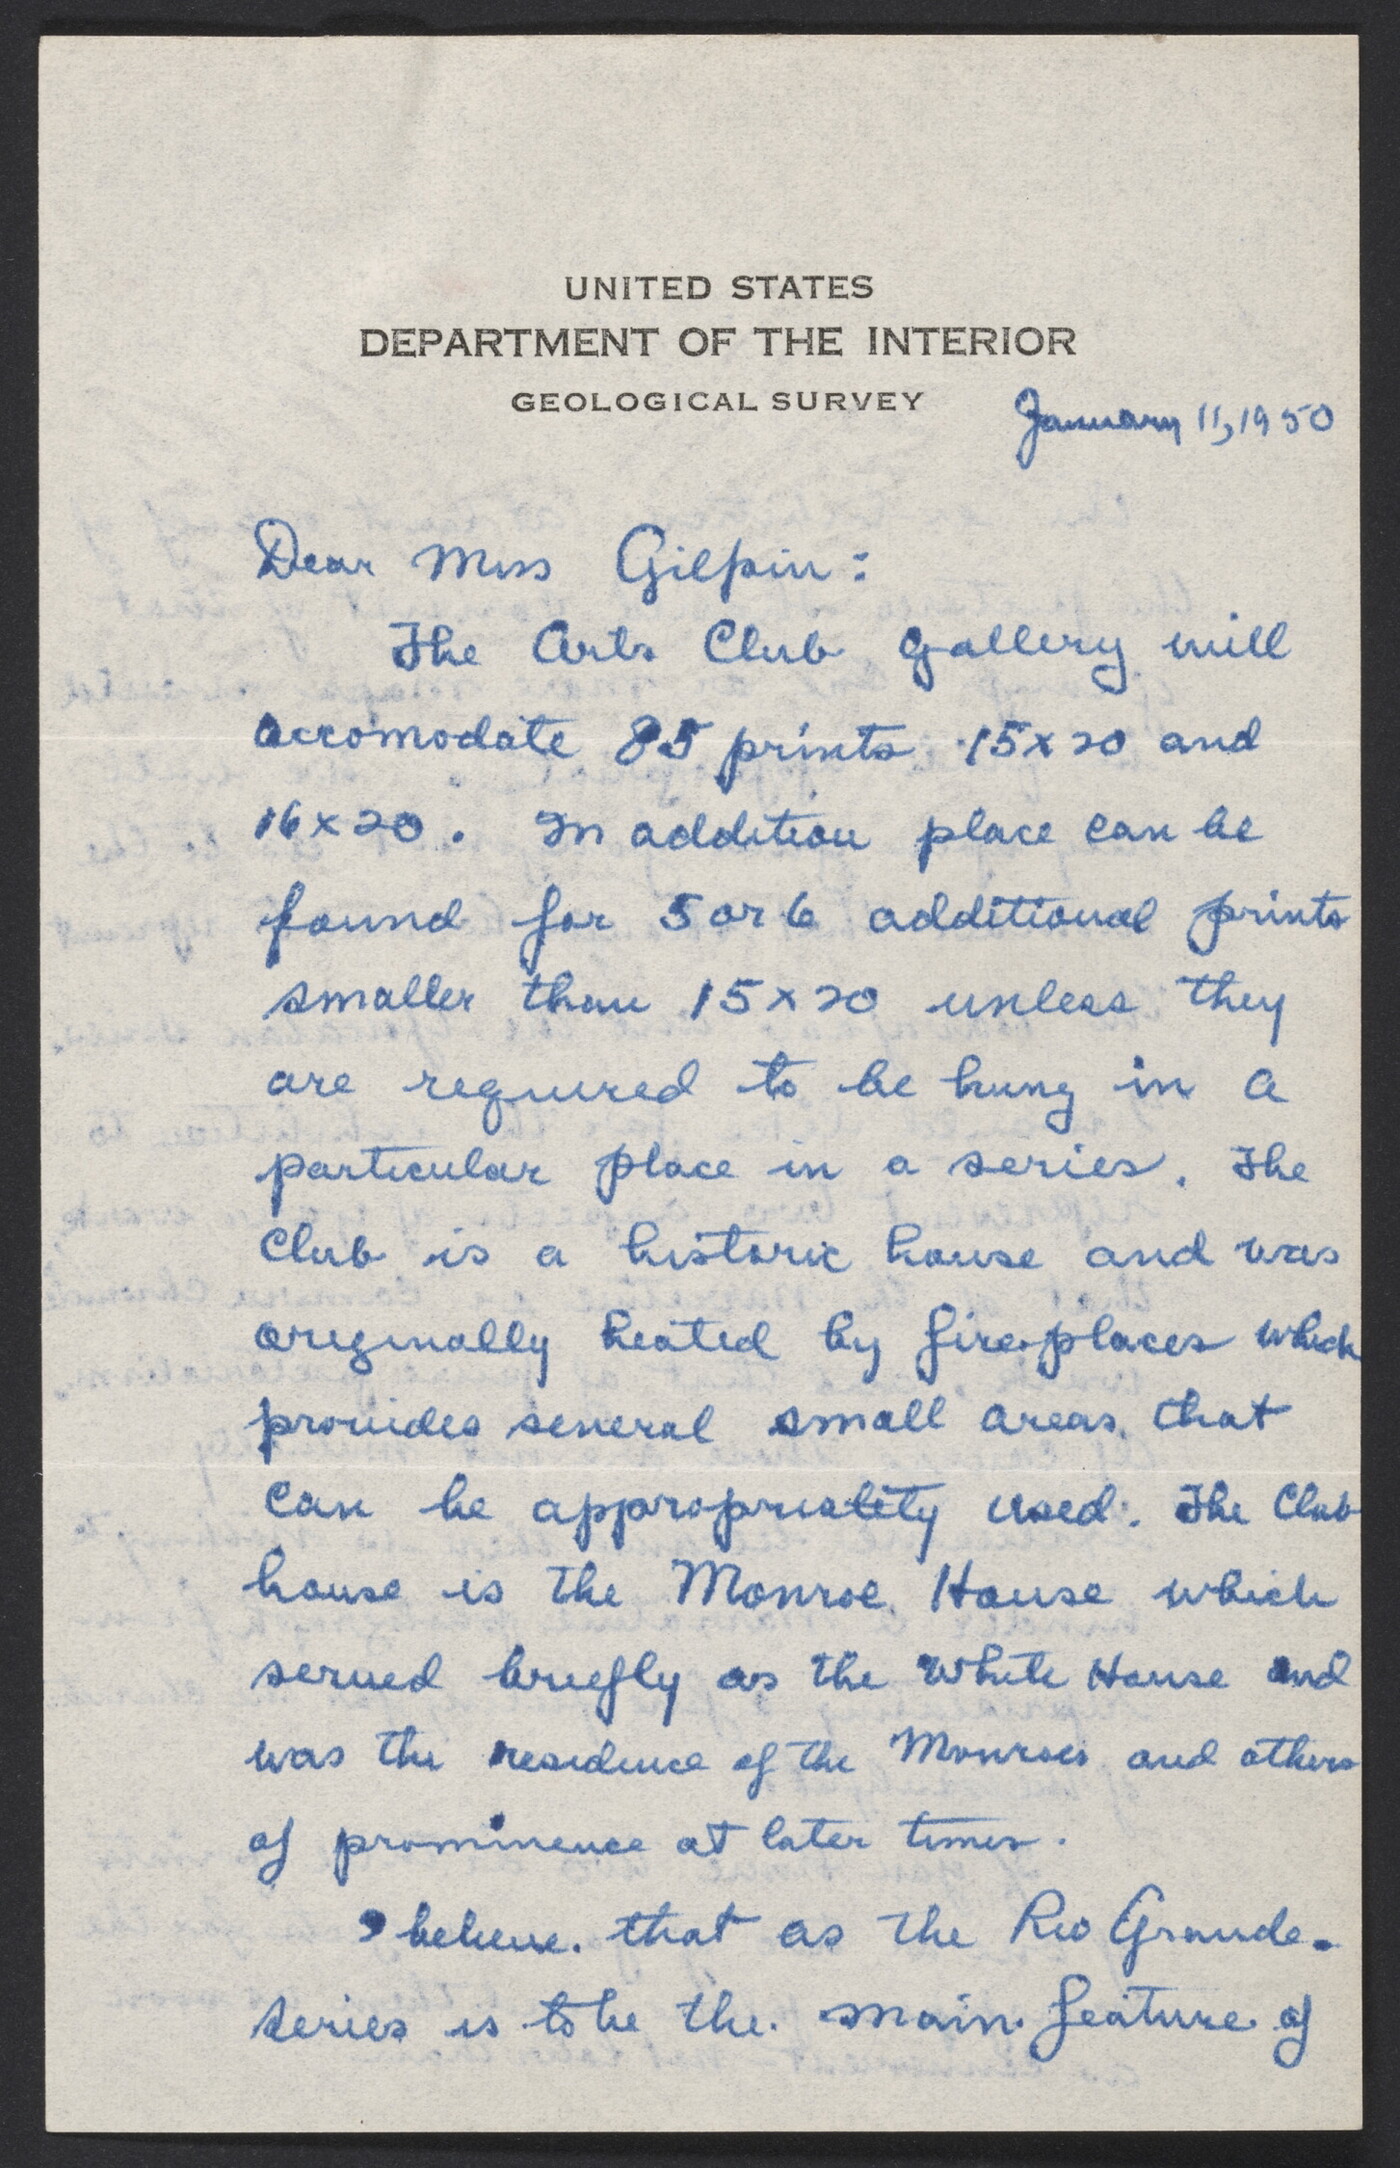 UNITED STATES
DEPARTMENT OF THE INTERIOR
GEOLOGICAL SURVEY
January 11, 1950
Dear Miss Gilpin:
The Arts Club gallery will
accomodate 85 prints 15x20 and
16x20. In addition place can be
found for 5 or 6 additional prints
smaller than 15x20 unless they
are required to be hung in a
particular place in a series. The
Club is a historic house and was
originally heated by fireplaces which
provides several small areas that
can be appropriatety used. The Club
house is the Monroe House which
served briefly as the White House and
was the residence of the Monroes and others
of prominence at later times.
I believe that as the Rio Grande
series is to be the main feature of